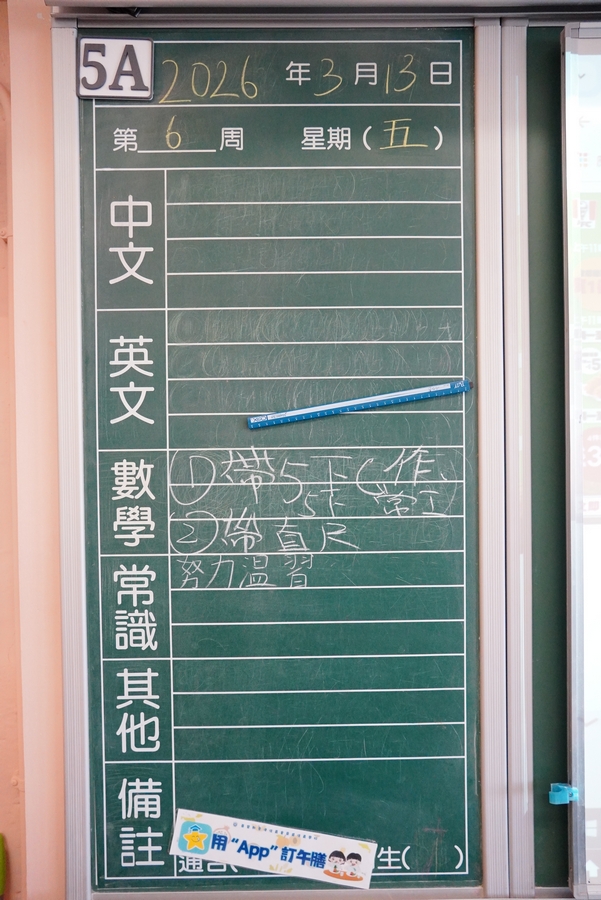 5A 2026 年 3 月 13 日
第 6 周 星期(五)
中文
英文
數學
① 帶 5下 (作、
5下 常工
② 帶直尺
常識
努力溫習
其他
備註
用“App”訂午膳
生( )